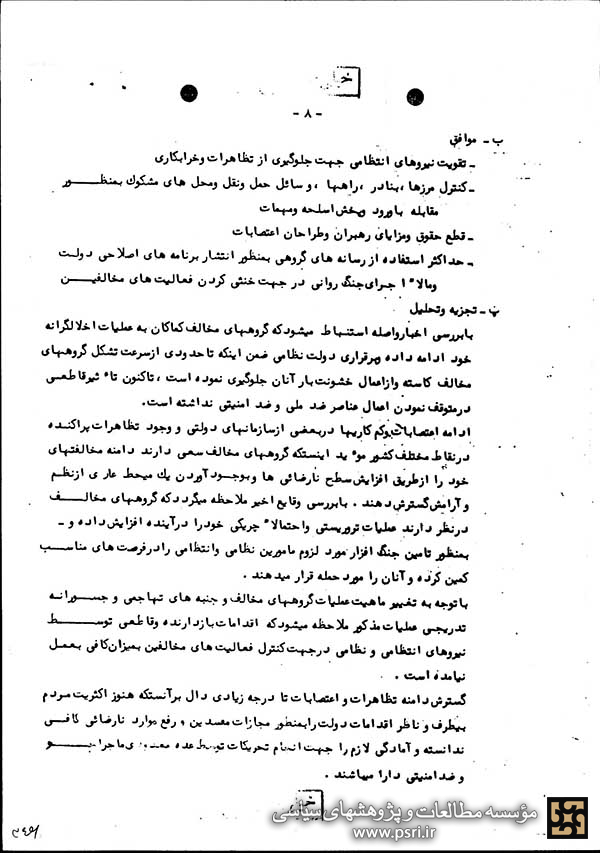 - ۸ -
ب - موافق
- تقویت نیروهای انتظامی جهت جلوگیری از تظاهرات وخرابکاری
- کنترل مرزها، بنادر، راهها، وسائل حمل ونقل ومحل های مشکوک بمنظور
مقابله باورود وپخش اسلحه ومهمات
- قطع حقوق ومزایای رهبران وطراحان اعتصابات
- حداکثر استفاده از رسانه های گروهی بمنظور انتشار برنامه های اصلاحی دولت
ومالاً اجرای جنگ روانی در جهت خنثی کردن فعالیت های مخالفین
پ - تجزیه وتحلیل
بابررسی اخبارواصله استنباط میشودکه گروههای مخالف کماکان به عملیات اخلالگرانه
خود ادامه داده وبرقراری دولت نظامی ضمن اینکه تاحدودی ازسرعت تشکل گروههای
مخالف کاسته وازاعمال خشونت بار آنان جلوگیری نموده است، تاکنون تاثیرقاطعی
درمتوقف نمودن اعمال عناصر ضد ملی و ضد امنیتی نداشته است.
ادامه اعتصابات وکم کاریها دربعضی ازسازمانهای دولتی و وجود تظاهرات پراکنده
درنقاط مختلف کشور موید اینستکه گروههای مخالف سعی دارند دامنه مخالفتهای
خود را ازطریق افزایش سطح نارضائی ها وبوجودآوردن یك میحط عاری ازنظم
وآرامش گسترش دهند. بابررسی وقایع اخیر ملاحظه میگردد که گروههای مخالف
درنظر دارند عملیات تروریستی واحتمالاً چریکی خودرا درآینده افزایش داده و -
بمنظور تامین جنگ افزار مورد لزوم مامورین نظامی وانتظامی رادرفرصت های مناسب
کمین کرده وآنان را مورد حمله قرار میدهند.
باتوجه به تغییر ماهیت عملیات گروههای مخالف و جنبه های تهاجمی و جسورانه
تدریجی عملیات مذکور ملاحظه میشودکه اقدامات بازدارنده وقاطعی توسط
نیروهای انتظامی و نظامی درجهت کنترل فعالیت های مخالفین بمیزان کافی بعمل
نیامده است.
گسترش دامنه تظاهرات و اعتصابات تا درجه زیادی دال برآنستکه هنوز اکثریت مردم
بیطرف و ناظر اقدامات دولت رابمنظور مجازات مفسدین و رفع موارد نارضائی کافی
ندانسته و آمادگی لازم را جهت انجام تحریکات توسط عده معدودی ماجراجو
وضد امنیتی دارا میباشند.
مؤسسه مطالعات و پژوهشهای سیاسی
www.psri.ir